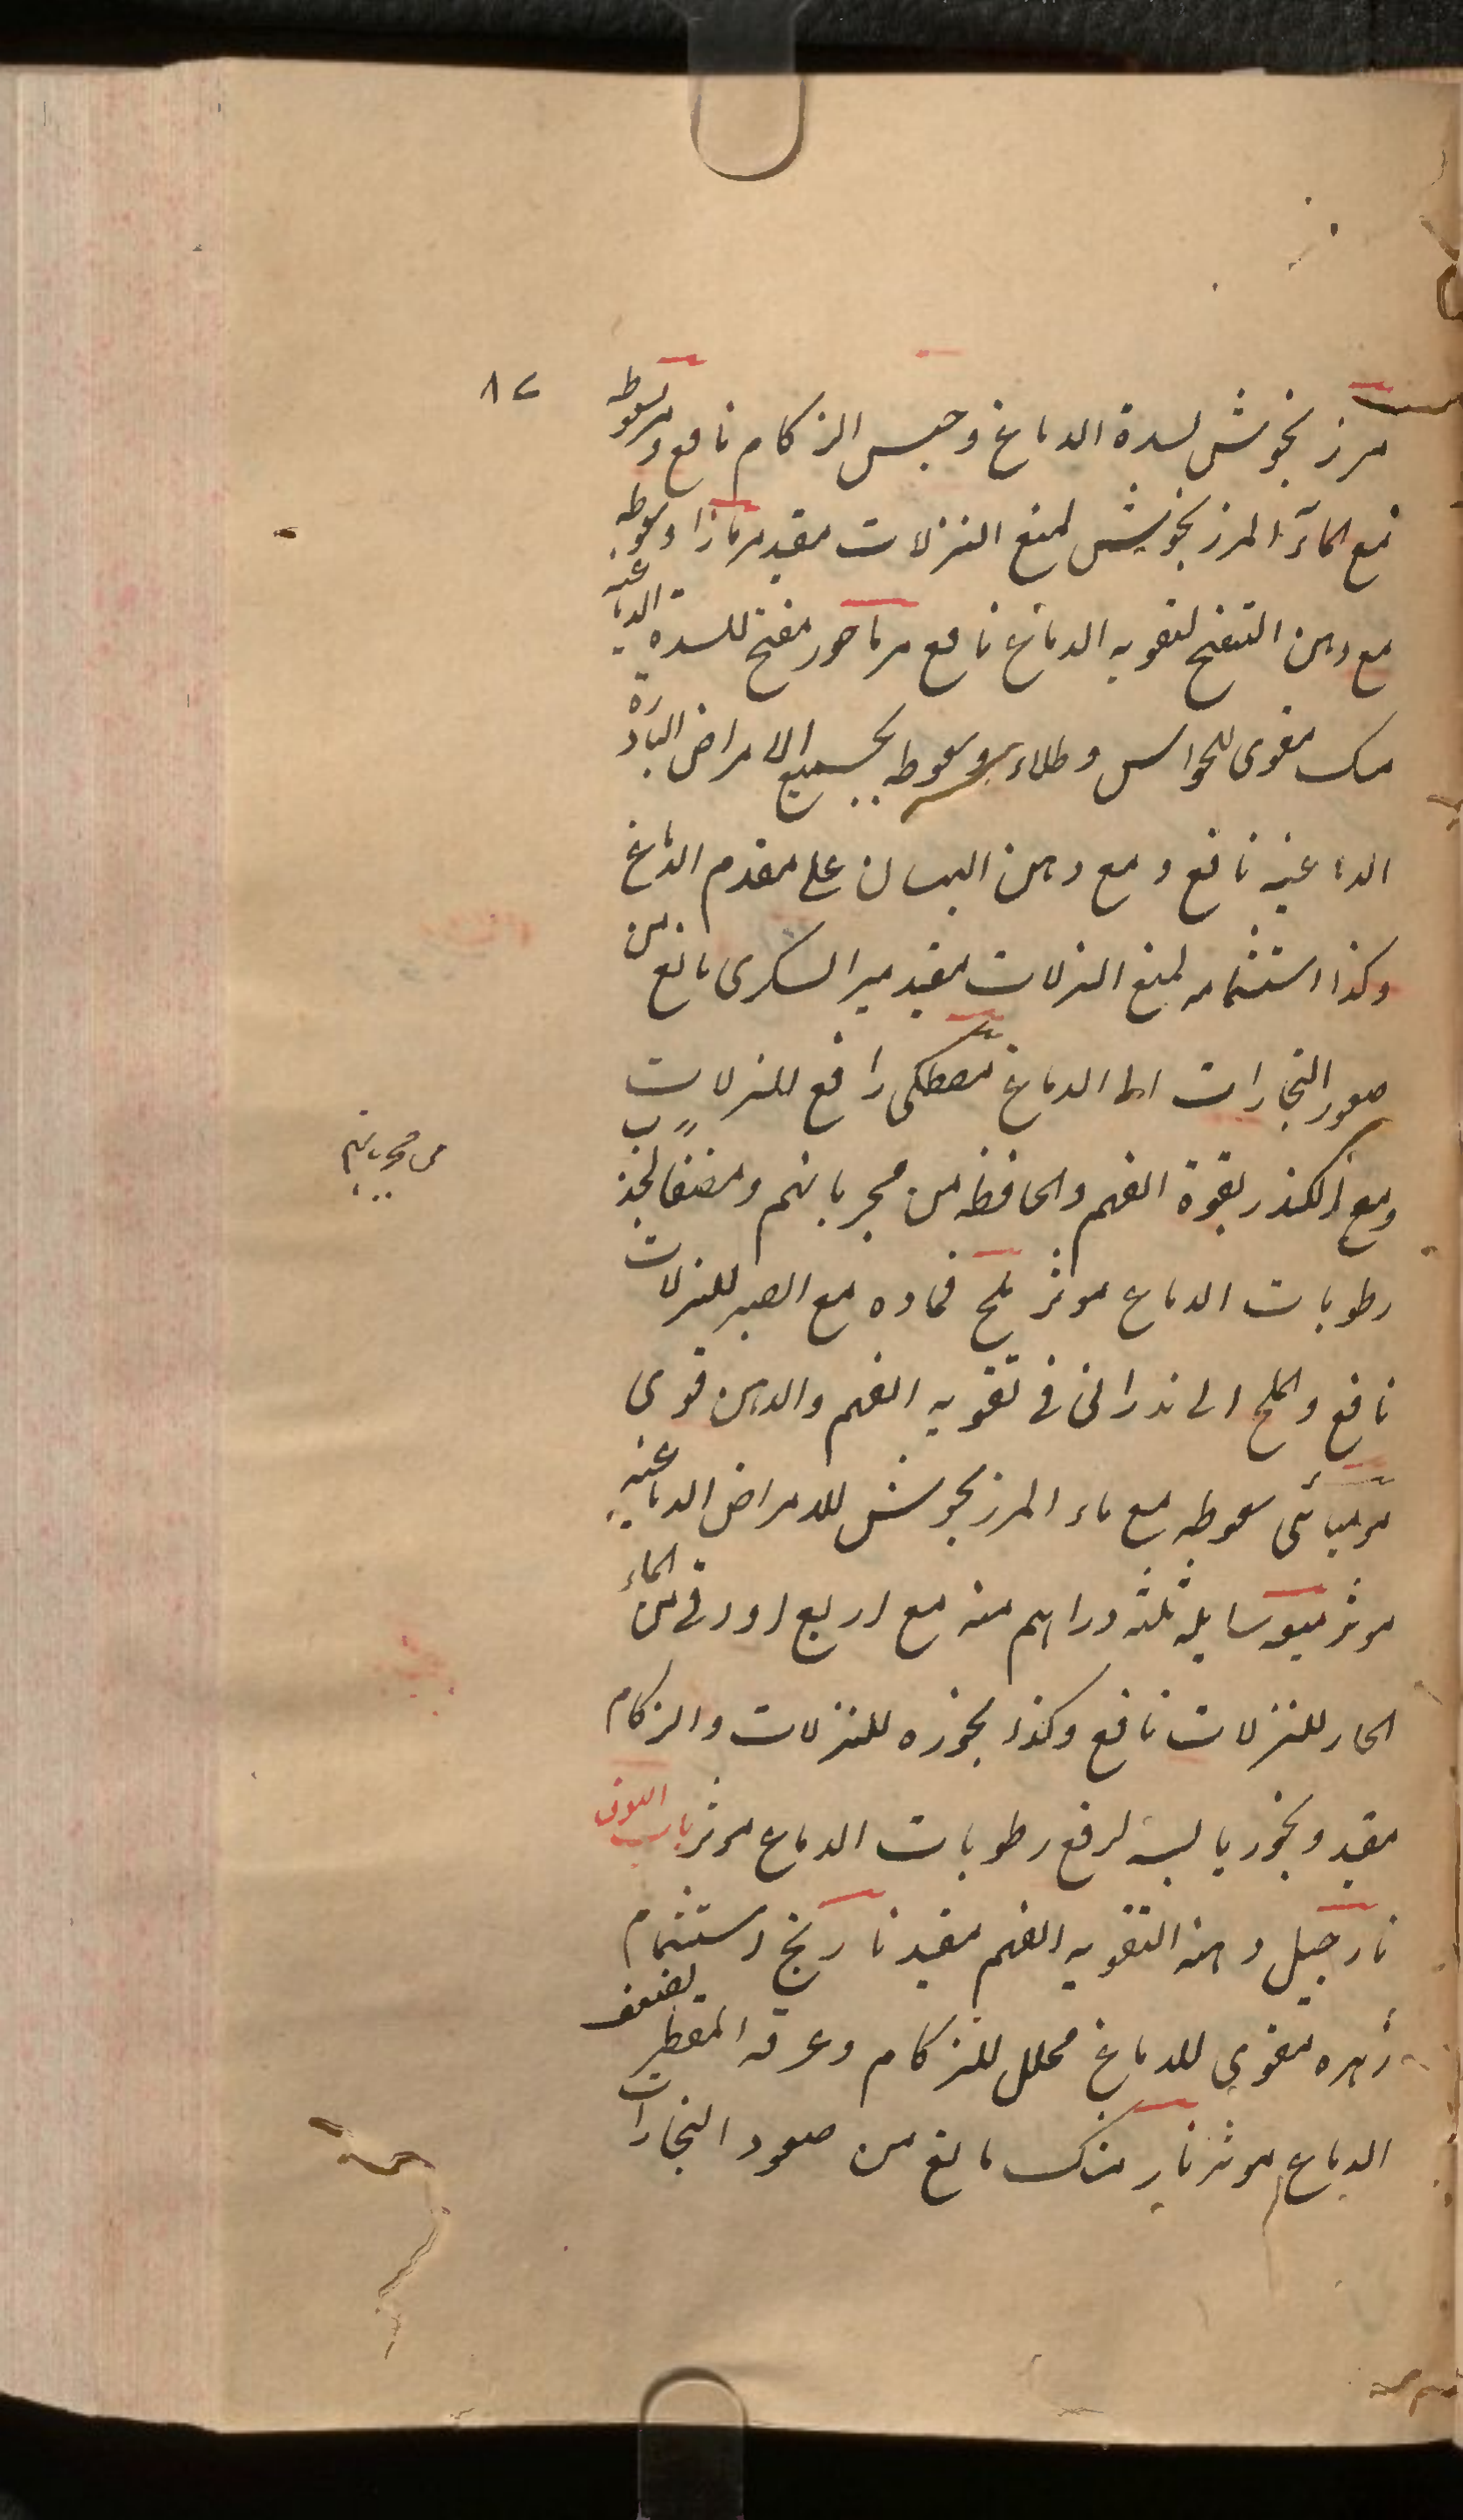 ٨٢
مرزنجوش لسدة الدماغ وحبس الزكام نافع ومر سعوطه
مع الماء المرزنجوش لمنع النزلات مفيد مرمازا وسعوطه
مع دهن البنفسج لتقويه الدماغ نافع مرماحور مفتح للسده الدماغيه
مسك مقوى للحواس وطلاء وسعوطه بجميع الامراض البادرة
الدماغيه نافع ومع دهن البان على مقدم الدماغ
وكذا استشمامه لمنع النزلات مفيد ميرالسكرى مانع من
صعود البخارات الى الدماغ مصطكى رافع للنزلات
ومع الكندر بقوة الفهم والحافظه من مجرباتهم ومضغها لجذب
رطوبات الدماغ موثر ملح ضماده مع الصبر للنزلات
نافع والملح الاندرانى فى تقويه الفهم والذهن قوى
موميائى سعوطه مع ماء المرزنجوش للامراض الدماغيه
موثر ميعه سايله ثلثه دراهم منه مع اربع اواق من الماء
الحار للنزلات نافع وكذا بخوره للنزلات والزكام
مفيد وبخور يابسه لرفع رطوبات الدماغ موثر باب النون
نارجيل دهنه التقويه الفهم مفيد نارنج استشمام
زهره مقوى للدماغ محلل للزكام وعرقه المقطر لضعف
الدماغ موثر نارمشك مانع من صعود البخارات
من مجرباتهم